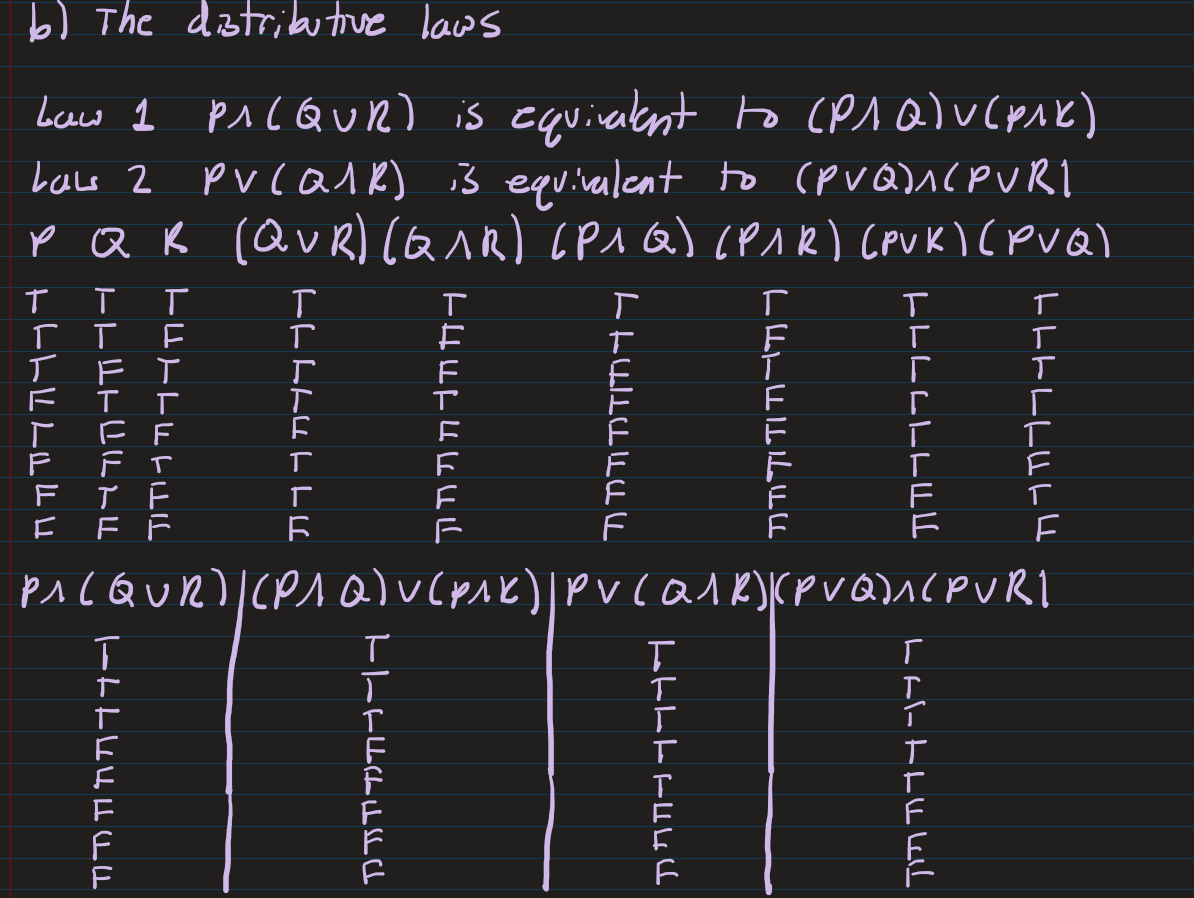 b) The distributive laws
Law 1 P∧(Q∪R) is equivalent to (P∧Q)∨(P∧R)
Law 2 P∨(Q∧R) is equivalent to (P∨Q)∧(P∨R)
P Q R (Q∪R) (Q∧R) (P∧Q) (P∧R) (P∨R) (P∨Q)
T T T T T T T T T
T T F T F T F T T
T F T T F F T T T
F T T T T F F T T
T F F F F F F T T
F F T T F F F T F
F T F T F F F F T
F F F F F F F F F
P∧(Q∪R) (P∧Q)∨(P∧R) P∨(Q∧R) (P∨Q)∧(P∨R)
T T T T
T T T T
T T T T
F F T T
F F T T
F F F F
F F F F
F F F F